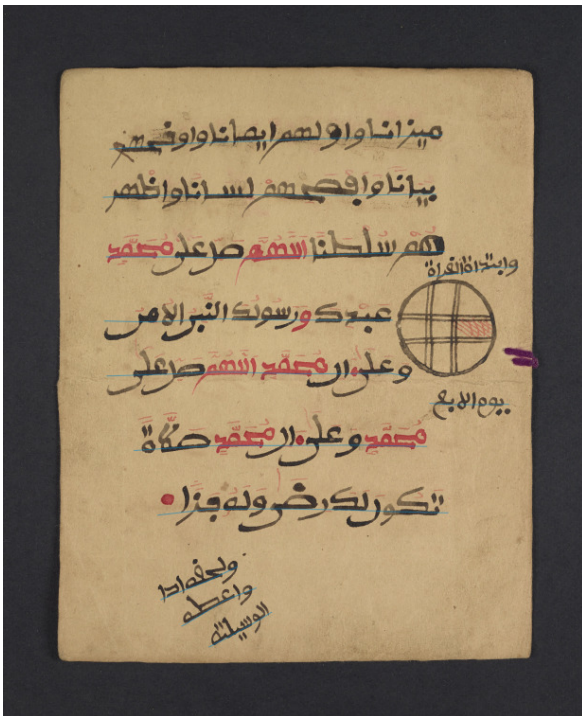 ميزانا واولهم ايمانا واوضحهم
بيانا وافصحهم لسانا واظهر
هم سلطنا اللهم صل على محمد
وابتداة القراة
عبدك ورسولك النبي الامي
وعلى ال محمد اللهم صل على
يوم الاربع
محمد وعلى ال محمد صلاة
تكون لك رضى وله جزا
ولحقه ادا
واعطه
الوسيلة